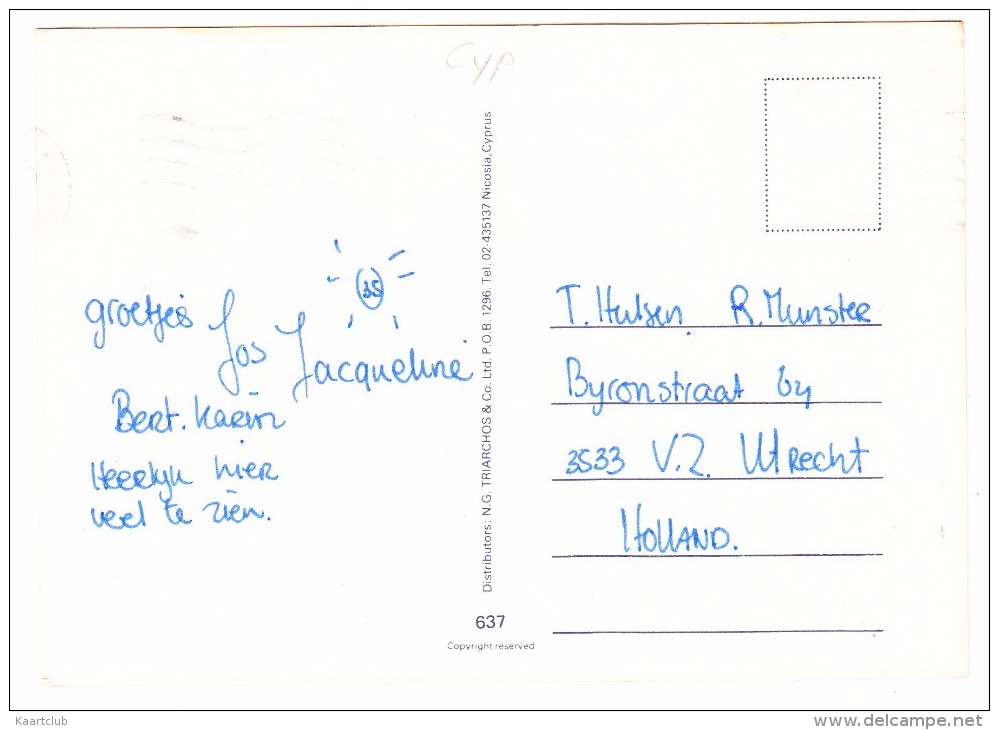 Cyp
groetjes Jos Jacqueline
35
Bert. Karin
Heerlijk hier
veel te zien.
Distributors: N.G. TRIARCHOS & Co. Ltd. P.O.B. 1296. Tel. 02-435137 Nicosia, Cyprus
637
Copyright reserved
T. Hulsen R. Munster
Byronstraat 64
3533 V.Z. Utrecht
HOLLAND.
Kaartclub
www.delcampe.net